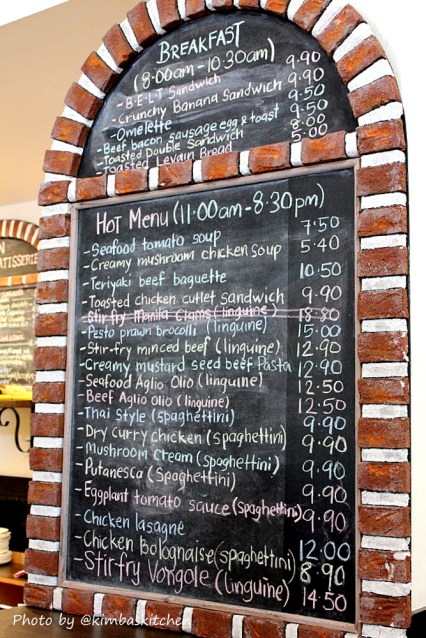 BREAKFAST
(8:00am-10:30am)
- B.E.L.T Sandwich 9.90
- Crunchy Banana Sandwich 9.90
- Omelette 9.50
- Beef bacon sausage egg & toast 9.50
- Toasted Double Sandwich 8.00
- Toasted Levain Bread 5.00
HOT MENU (11:00am-8:30pm)
- Seafood tomato soup 7.50
- Creamy mushroom chicken soup 5.40
- Teriyaki beef baguette 10.50
- Toasted chicken cutlet sandwich 9.90
- Stir-fry Manila Clams (linguine) 18.80
- Pesto prawn brocolli (linguine) 15.00
- Stir-fry minced beef (linguine) 12.90
- Creamy mustard seed beef Pasta 12.90
- Seafood Aglio Olio (linguine) 12.50
- Beef Aglio Olio (linguine) 12.50
- Thai Style (spaghettini) 9.90
- Dry curry chicken (spaghettini) 9.90
- Mushroom Cream (spaghettini) 9.90
- Putanesca (Spaghettini) 9.90
- Eggplant tomato sauce (spaghettini) 9.90
- Chicken lasagne 12.00
- Chicken bolognaise (spaghettini) 8.90
- Stirfry Vongole (linguine) 14.50
Photo by @kimbaskitchen